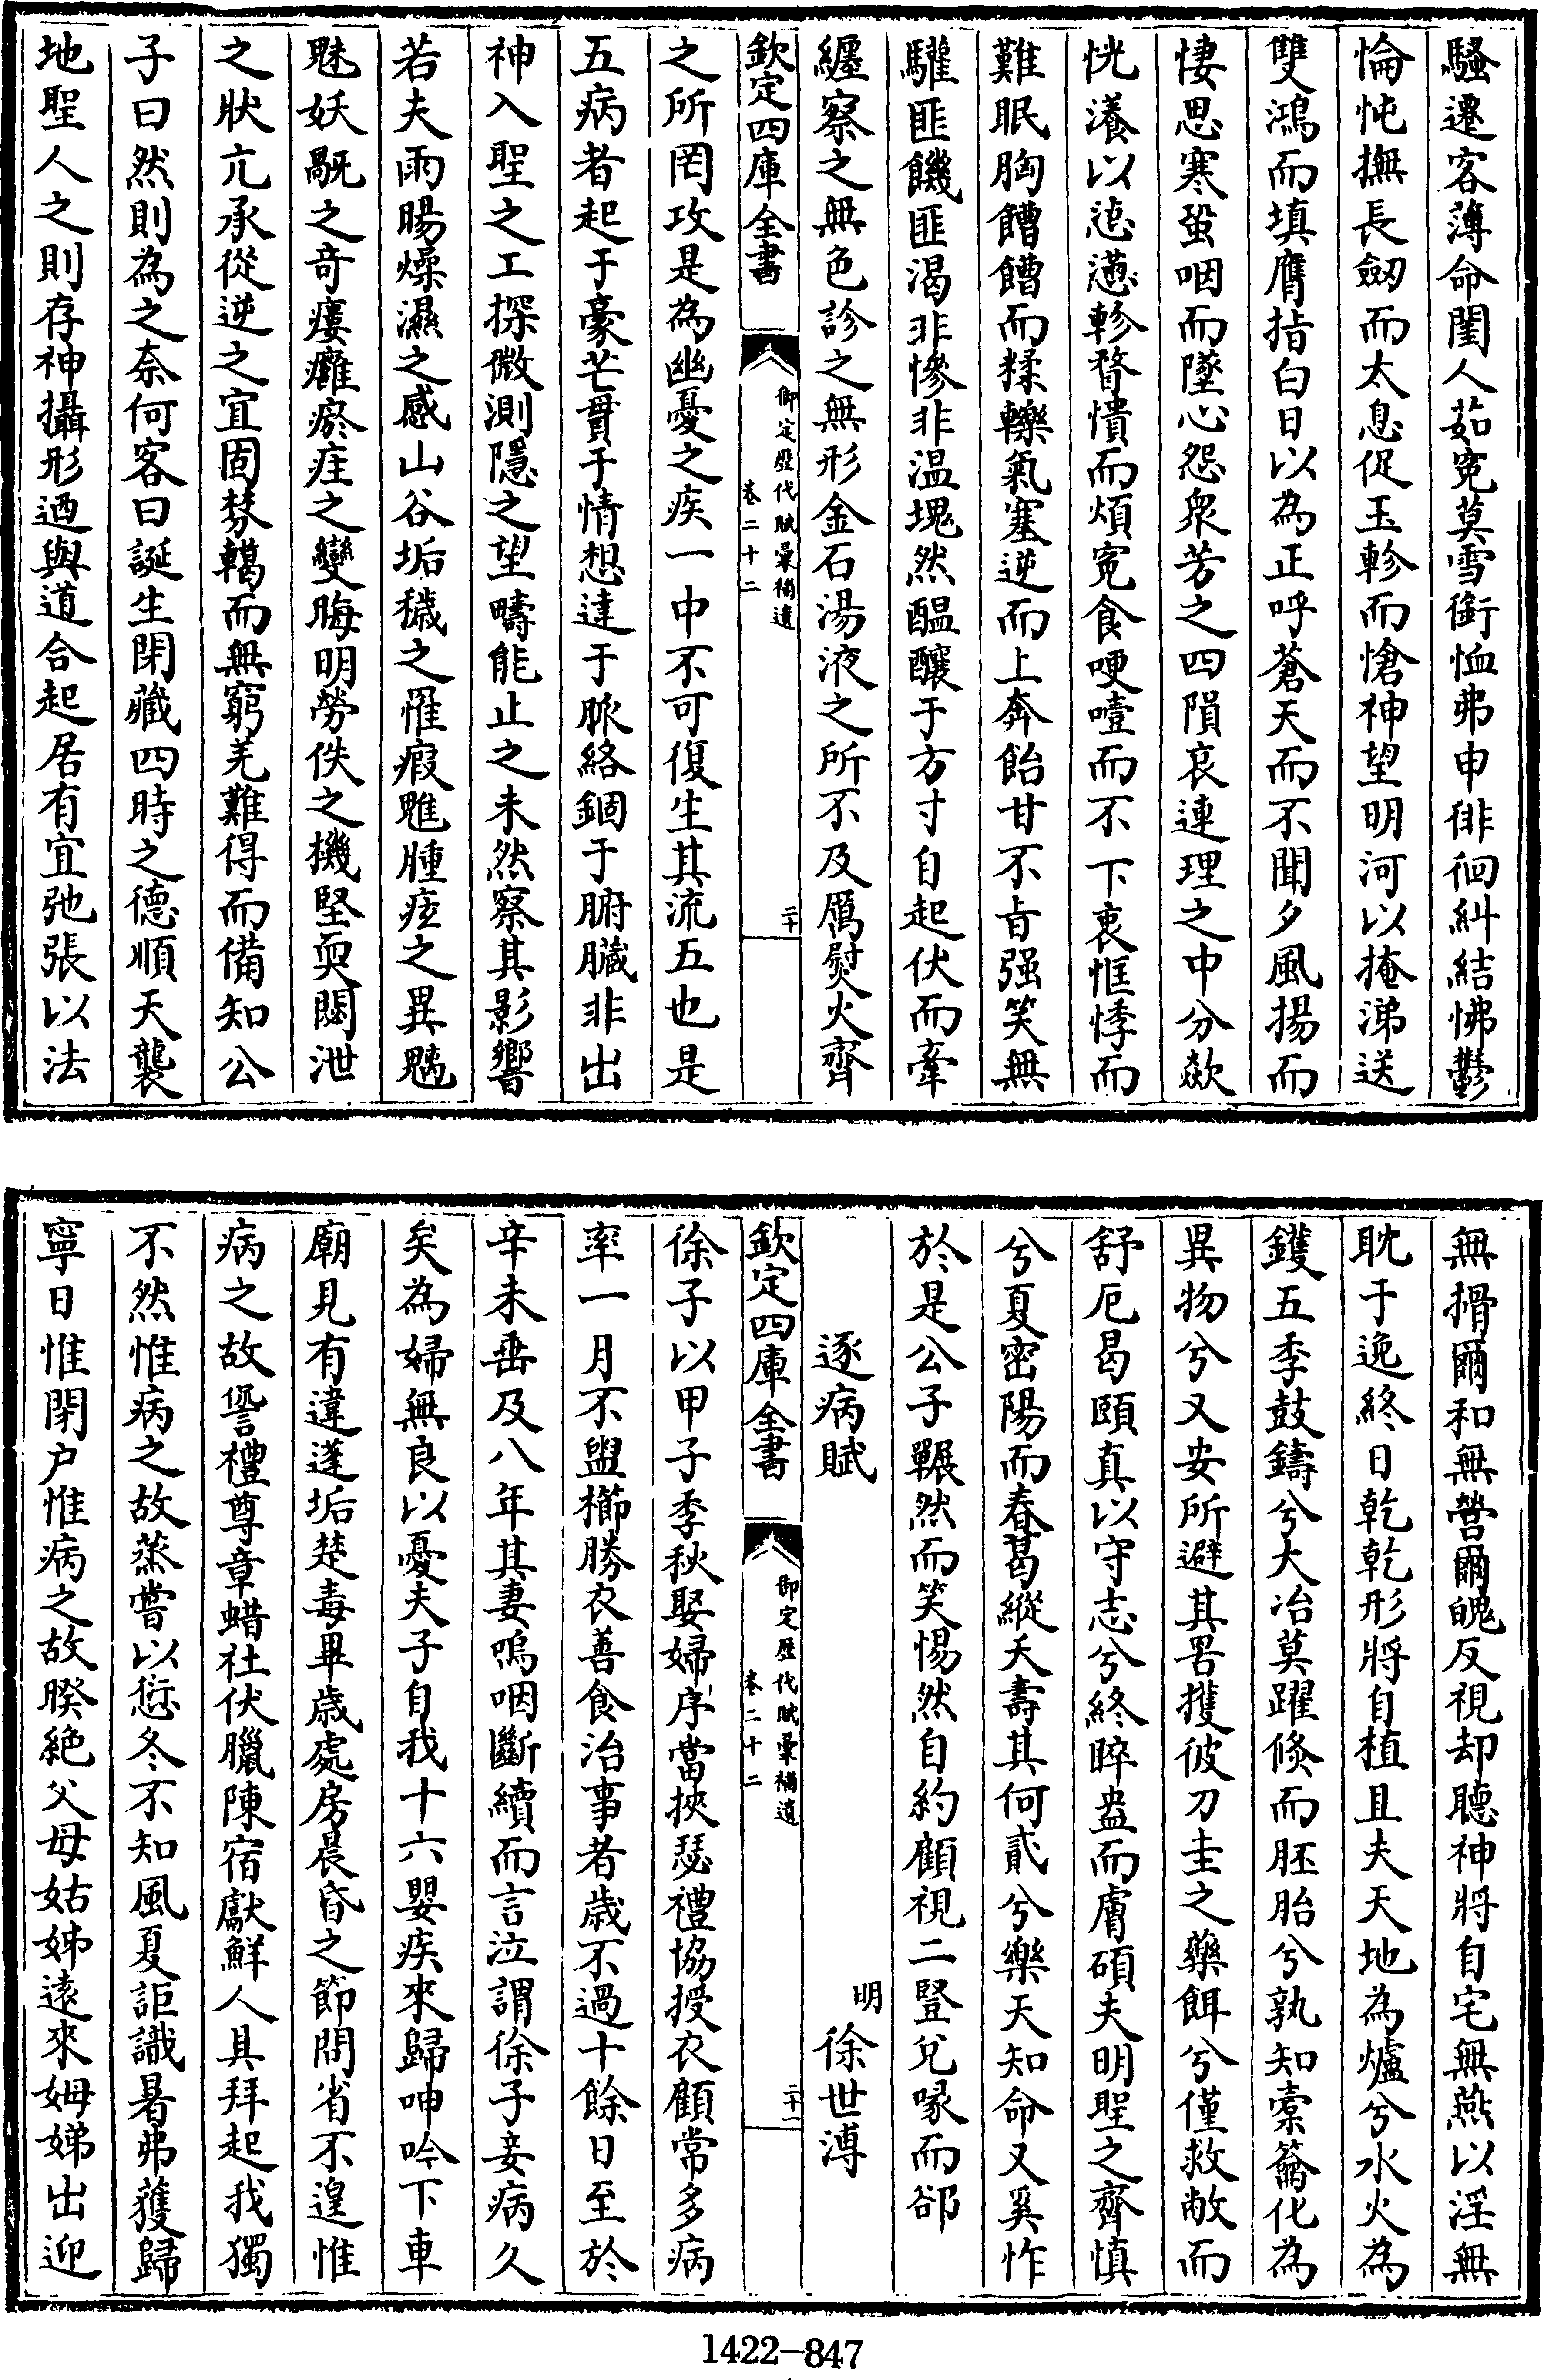 騷遷客薄命閨人茹寃莫雪銜恤弗申徘徊糾結怫鬱
惀忳撫長劒而太息促玉軫而愴神望明河以掩涕送
雙鴻而填膺指白日以為正呼蒼天而不聞夕風揚而
悽思寒蛩咽而墜心怨衆芳之四隕哀連理之中分歘
恍瀁以惉懘軫瞀憒而煩寃食哽噎而不下衷恇悸而
難眠胸饋饋而糅轢氣塞逆而上奔飴甘不旨强笑無
驩匪饑匪渴非慘非温塊然醖釀于方寸自起伏而牽
纏察之無色診之無形金石湯液之所不及厲熨火齊
欽定四庫全書
御定歷代賦彙補遺
卷二十二
二十
之所罔攻是為幽憂之疾一中不可復生其流五也是
五病者起于豪芒貫于情想達于脈絡錮于腑臟非出
神入聖之工探微測隱之望疇能止之未然察其影響
若夫雨暘燥濕之感山谷垢穢之罹瘕魋腫痃之異魑
魅妖翳之奇瘻癰瘀疰之變晦明勞佚之機堅耎閼泄
之狀亢承從逆之宜固棼轕而無窮羌難得而備知公
子曰然則為之奈何客曰誕生閉藏四時之德順天襲
地聖人之則存神攝形迺與道合起居有宜弛張以法
無搰爾和無營爾魄反視却聽神將自宅無燕以淫無
耽于逸終日乾乾形將自植且夫天地為爐兮水火為
鑊五季鼓鑄兮大冶莫躍倏而胚胎兮孰知橐籥化為
異物兮又安所避其罟擭彼刀圭之藥餌兮僅救敝而
舒厄曷頤真以守志兮終睟盎而膚碩夫明聖之齊慎
兮夏密陽而春葛縱夭壽其何貳兮樂天知命又奚怍
於是公子囅然而笑惕然自約顧視二豎兌喙而郤
逐病賦
明
徐世溥
欽定四庫全書
御定歷代賦彙補遺
卷二十二
二十一
徐子以甲子季秋娶婦序當挾瑟禮協授衣顧常多病
率一月不盥櫛勝衣善食治事者歲不過十餘日至於
辛未垂及八年其妻嗚咽斷續而言泣謂徐子妾病久
矣為婦無良以憂夫子自我十六嬰疾來歸呻吟下車
廟見有違蓬垢楚毒畢歲處房晨昏之節問省不遑惟
病之故諐禮尊章蜡社伏臘陳宿獻鮮人具拜起我獨
不然惟病之故蒸嘗以愆冬不知風夏詎識暑弗獲歸
寧日惟閉户惟病之故暌絶父母姑姊遠來姆娣出迎
1422—847